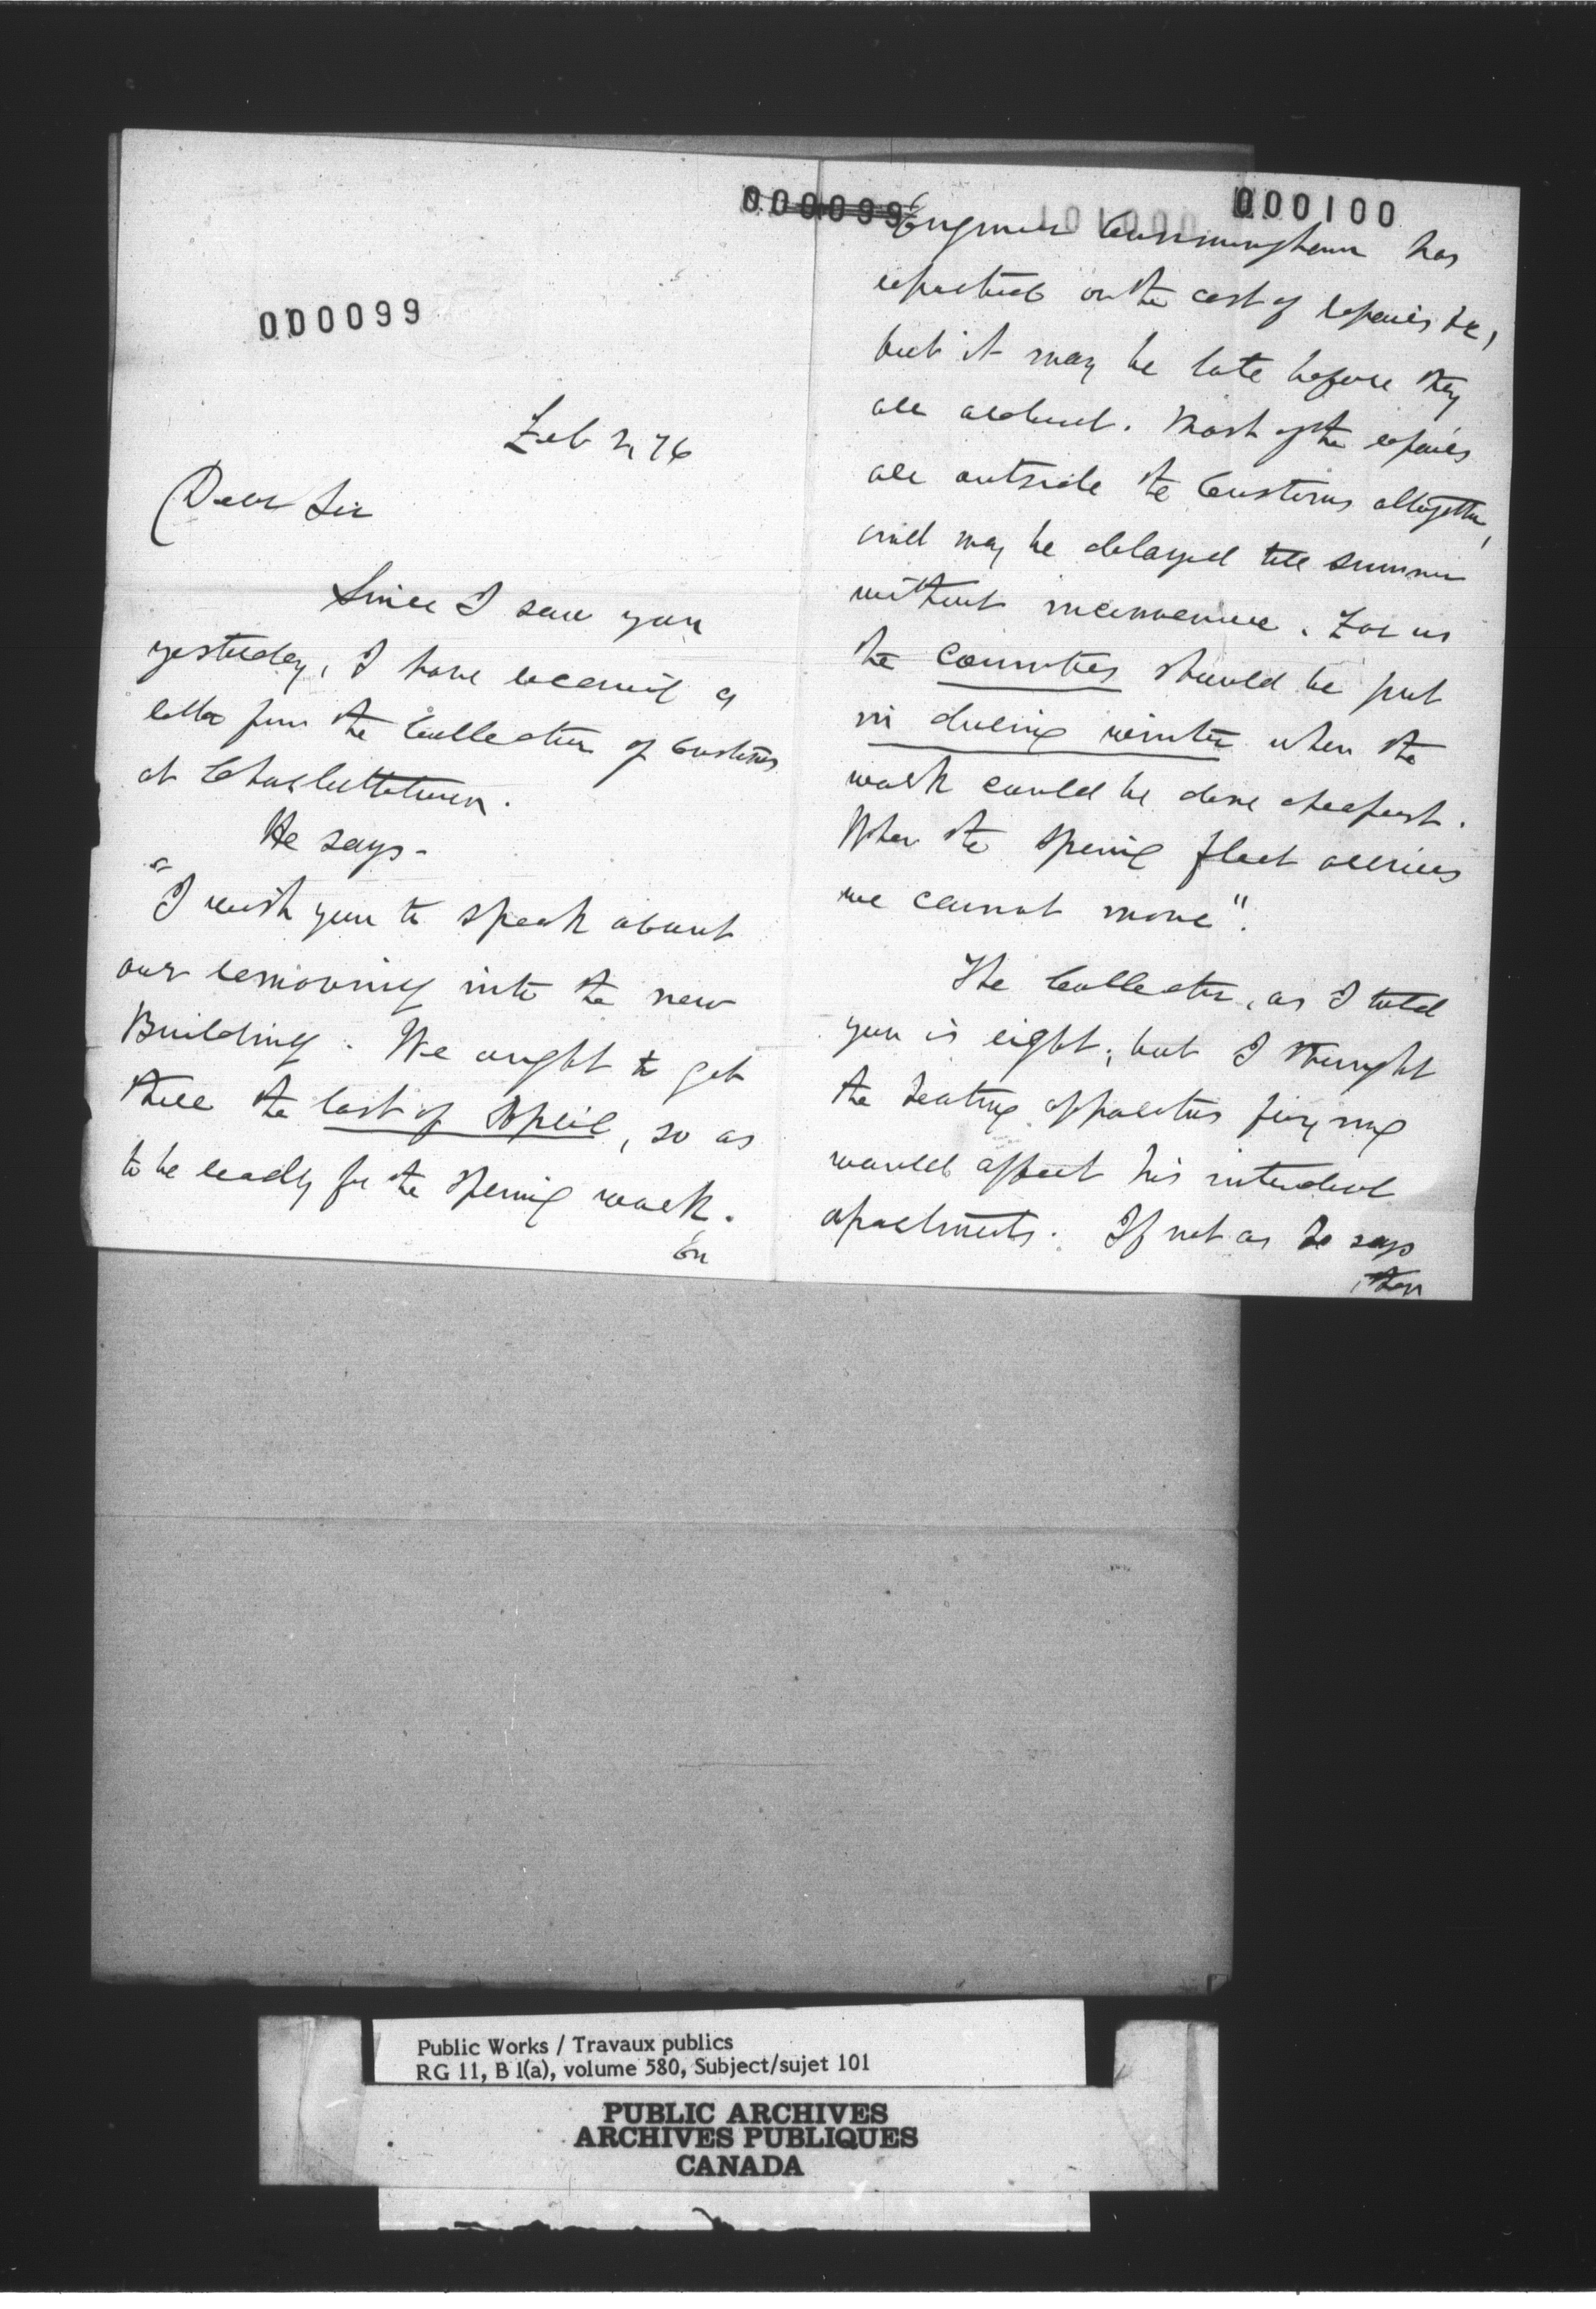 000099
Feb 2, 76
Dear Sir
Since I saw you
yesterday, I have received a
letter from the Collector of Customs
at Charlottetown.
He says -
"I wish you to speak about
our removing into the new
Building. We ought to get
there the last of April, so as
to be ready for the Spring work.
En
000099
000100
Engineer Cunningham has
reported on the cost of repairs &c,
but it may be late before they
are ordered. Most of the repairs
are outside the Customs altogether,
and may be delayed till summer
without inconvenience. For us
the counters should be put
in during winter when the
work could be done cheapest.
When the Spring fleet arrives
we cannot move".
The Collector, as I told
you is right; but I thought
the heating apparatus fixing
would affect his intended
apartments. If not as he says
then
Public Works / Travaux publics
RG 11, B 1(a), volume 580, Subject/sujet 101
PUBLIC ARCHIVES
ARCHIVES PUBLIQUES
CANADA